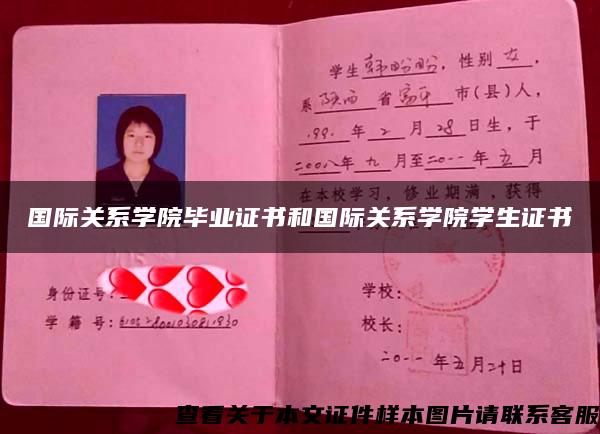 学生韩盼盼，性别女，
系陕西省富平市(县)人，
1991年2月28日生，于
二〇〇八年九月至二〇一一年五月
在本校学习，修业期满，获得
国际关系学院毕业证书和国际关系学院学生证书
身份证号：
学籍号：
学校：
校长：
二〇一一年五月二十日
查看关于本文证件样本图片请联系客服